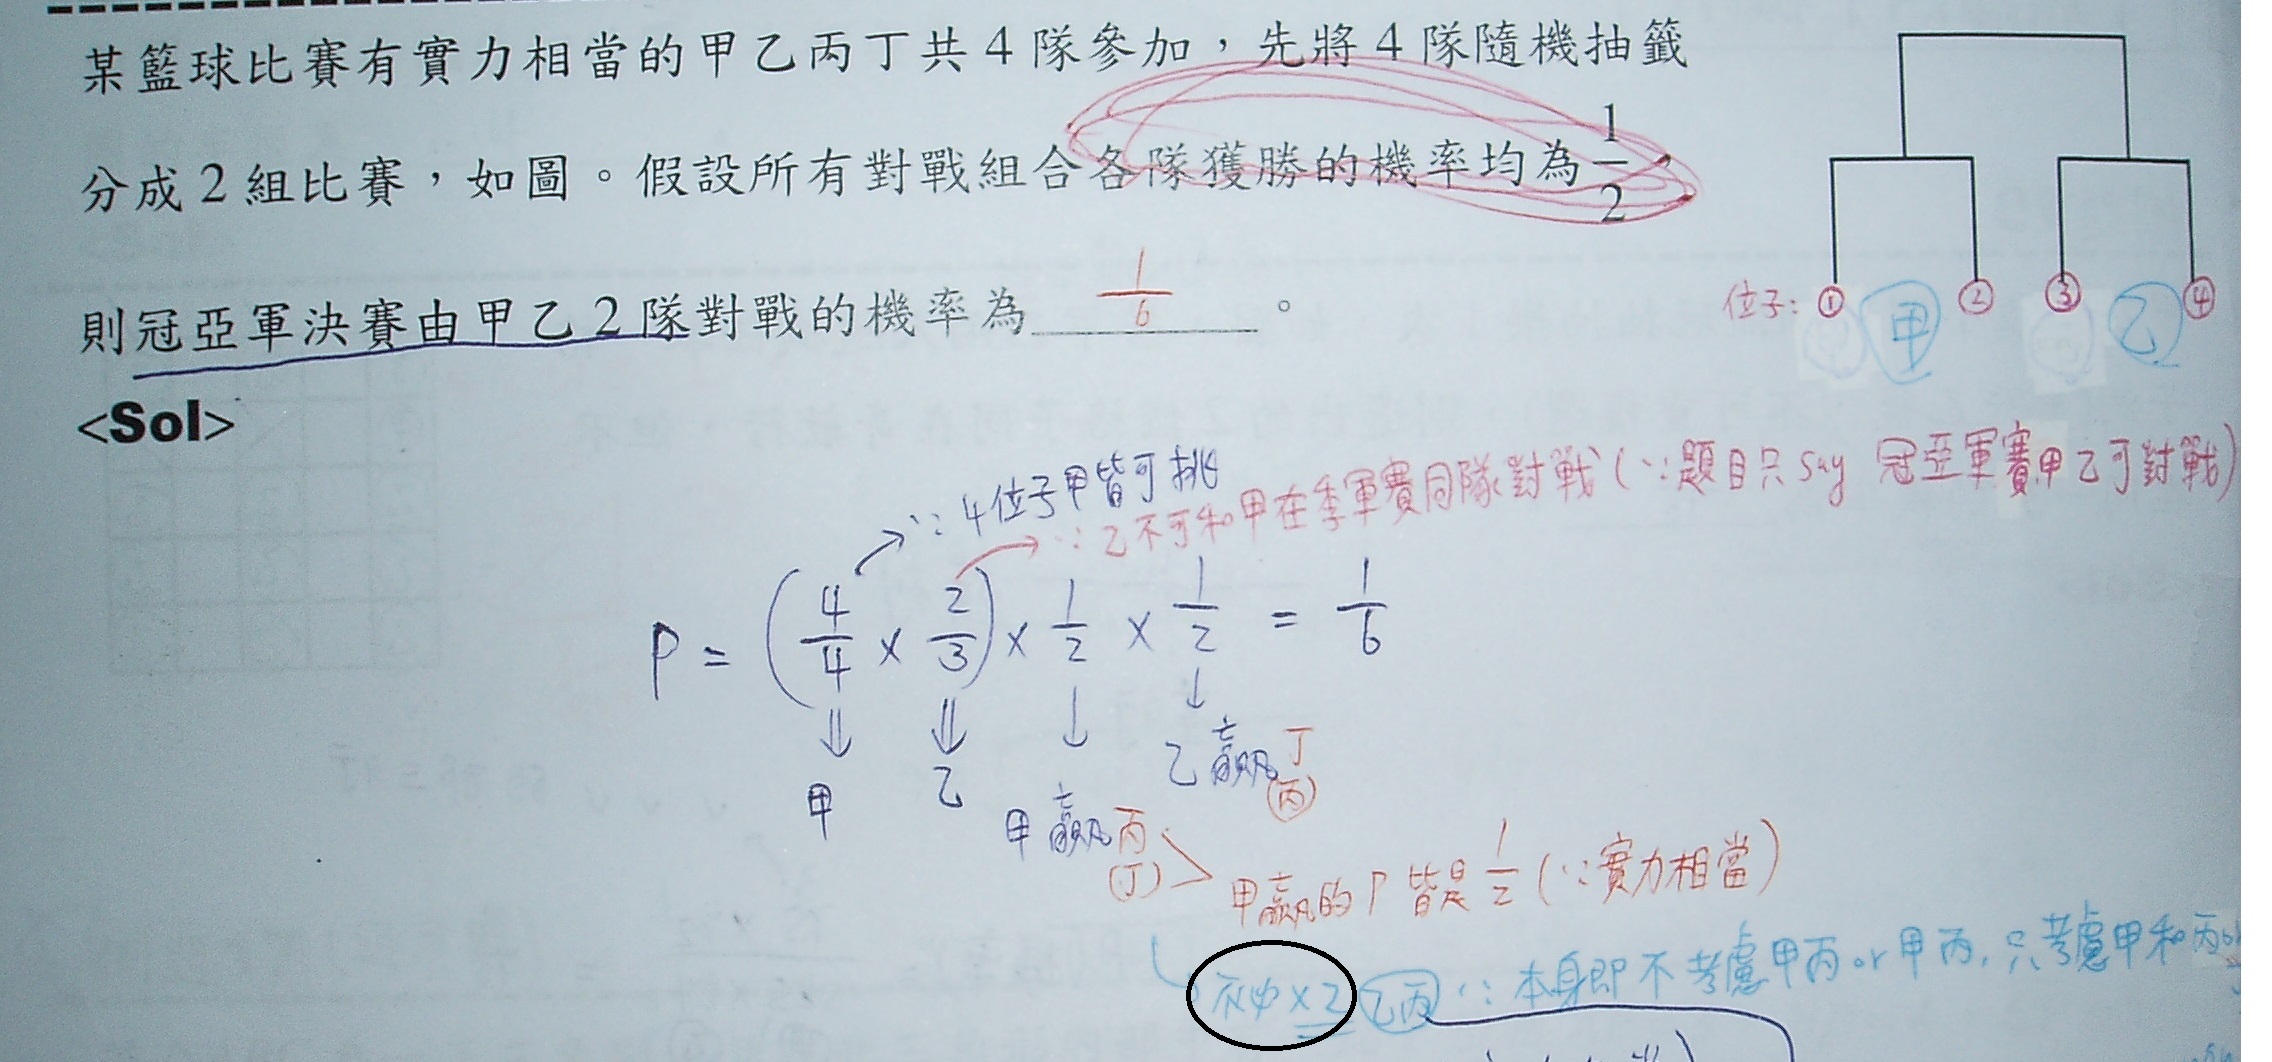 某籃球比賽有實力相當的甲乙丙丁共4隊參加，先將4隊隨機抽籤
分成2組比賽，如圖。假設所有對戰組合各隊獲勝的機率均為1/2，
則冠亞軍決賽由甲乙2隊對戰的機率為 1/6 。
位子: ① ② ③ ④
甲 乙
<Sol>
∵4位子甲皆可挑
∵乙不可和甲在季軍賽同隊對戰(∵題目只say 冠亞軍賽甲乙可對戰)
P = (4/4 × 2/3) × 1/2 × 1/2 = 1/6
甲 乙 甲贏丙(丁) 乙贏丁(丙)
甲贏的P皆是1/2(∵實力相當)
×2 乙丙 ∵本身即不考慮甲丙or甲丙,只考慮甲和丙or